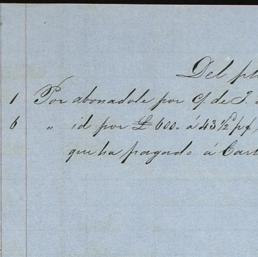 Del
1 Por abonadole por C/ de J.
6 " id por £ 600. á 43½ p/f,
que ha pagado á